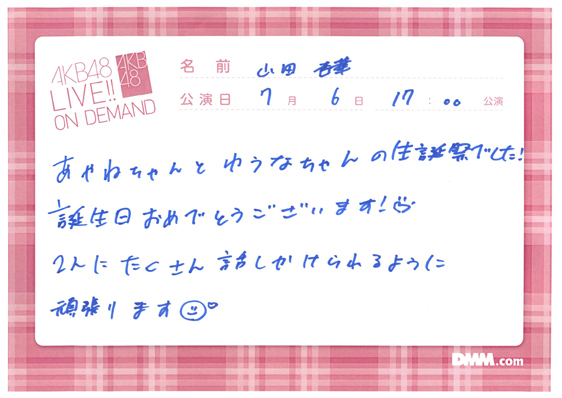 AKB48
LIVE!!
ON DEMAND
AKB
48
名前 山田 杏華
公演日 7月 6日 17:00 公演
あやねちゃんとゆうなちゃんの生誕祭でした!
誕生日おめでとうございます!
2人にたくさん話しかけられるように
頑張ります
DMM.com